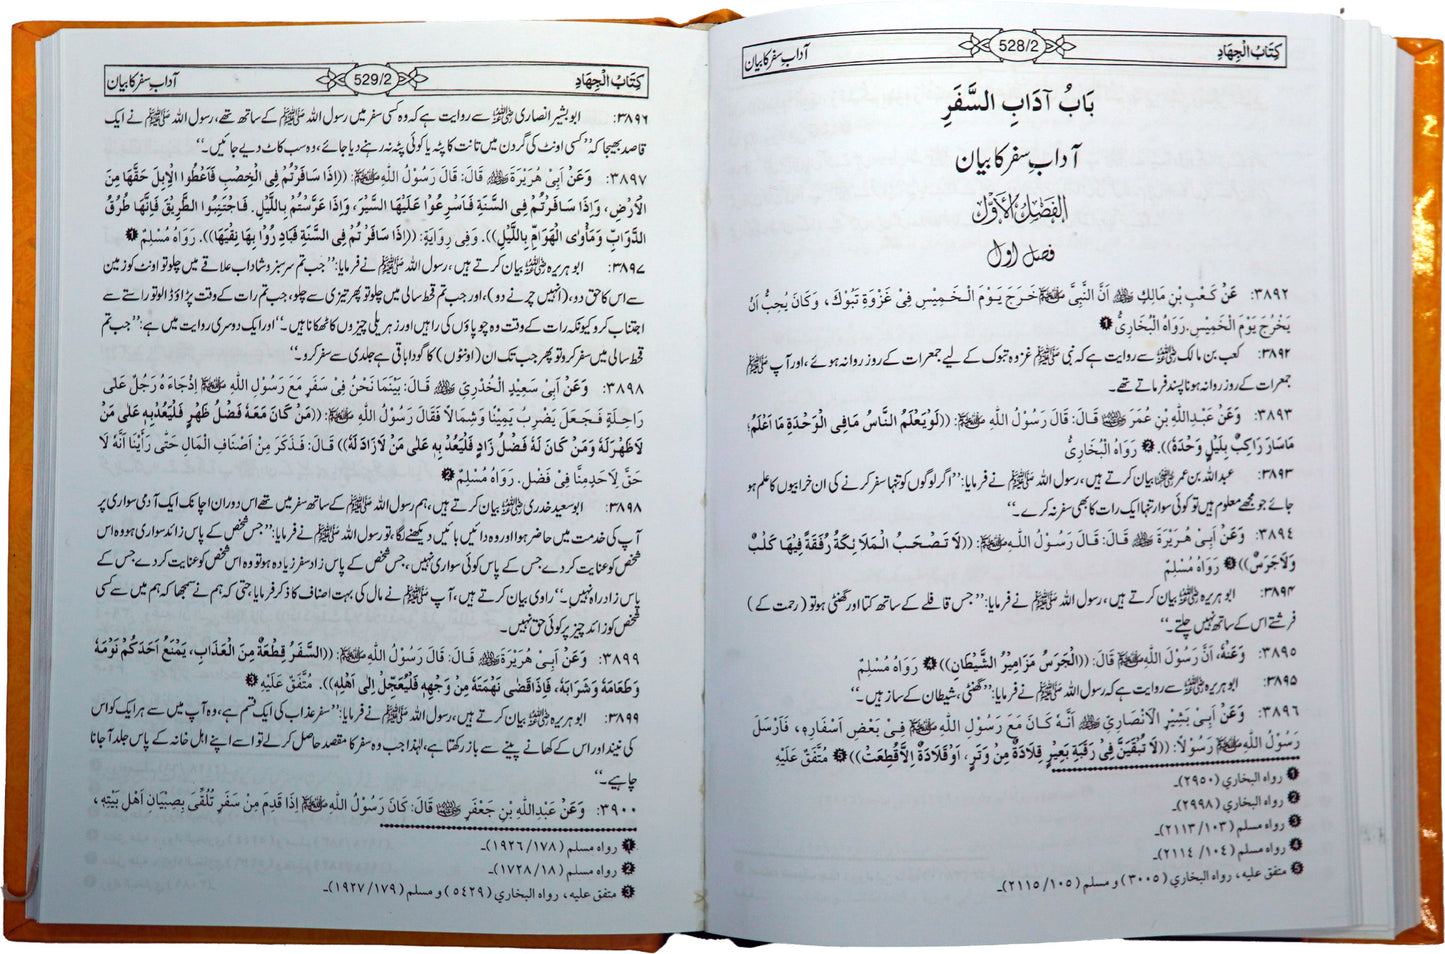 كِتَابُ الْجِهَادِ 528/2 آداب سفر کا بیان
بَابُ آدَابِ السَّفَرِ
آداب سفر کا بیان
اَلْفَصْلُ الْأَوَّلُ
فصل اول
٣٨٩٢: عَنْ كَعْبِ بْنِ مَالِكٍ ؓ اَنَّ النَّبِیَّ ﷺ خَرَجَ يَوْمَ الْخَمِيْسِ فِیْ غَزْوَةِ تَبُوْكَ، وَكَانَ يُحِبُّ اَنْ
يَخْرُجَ يَوْمَ الْخَمِيْسِ. رَوَاهُ الْبُخَارِیُّ ❶
٣٨٩٢: کعب بن مالک ؓ سے روایت ہے کہ نبی ﷺ غزوہ تبوک کے لیے جمعرات کے روز روانہ ہوئے، اور آپ ﷺ
جمعرات کے روز روانہ ہونا پسند فرماتے تھے۔
٣٨٩٣: وَعَنْ عَبْدِاللّٰهِ بْنِ عُمَرَ ؓ قَالَ: قَالَ رَسُوْلُ اللّٰهِ ﷺ: ((لَوْ يَعْلَمُ النَّاسُ مَا فِی الْوَحْدَةِ مَا اَعْلَمُ؛
مَا سَارَ رَاكِبٌ بِلَيْلٍ وَحْدَهُ)). ❷ رَوَاهُ الْبُخَارِیُّ
٣٨٩٣: عبداللہ بن عمر ؓ بیان کرتے ہیں، رسول اللہ ﷺ نے فرمایا: ’’اگر لوگوں کو تنہا سفر کرنے کی ان خرابیوں کا علم ہو
جائے جو مجھے معلوم ہیں تو کوئی سوار تنہا ایک رات کا بھی سفر نہ کرے۔‘‘
٣٨٩٤: وَعَنْ اَبِیْ هُرَيْرَةَ ؓ قَالَ: قَالَ رَسُوْلُ اللّٰهِ ﷺ: ((لَا تَصْحَبُ الْمَلَائِكَةُ رُفْقَةً فِيْهَا كَلْبٌ
وَلَا جَرَسٌ)) ❸ رَوَاهُ مُسْلِمٌ
٣٨٩٤: ابو ہریرہ ؓ بیان کرتے ہیں، رسول اللہ ﷺ نے فرمایا: ’’جس قافلے کے ساتھ کتا اور گھنٹی ہو تو (رحمت کے)
فرشتے اس کے ساتھ نہیں چلتے۔‘‘
٣٨٩٥: وَعَنْهُ، اَنَّ رَسُوْلَ اللّٰهِ ﷺ قَالَ: ((الْجَرَسُ مَزَامِيْرُ الشَّيْطَانِ)) ❹ رَوَاهُ مُسْلِمٌ
٣٨٩٥: ابو ہریرہ ؓ سے روایت ہے کہ رسول اللہ ﷺ نے فرمایا: ’’گھنٹی، شیطان کے ساز ہیں۔‘‘
٣٨٩٦: وَعَنْ اَبِیْ بَشِيْرٍ الْاَنْصَارِیِّ ؓ اَنَّهُ كَانَ مَعَ رَسُوْلِ اللّٰهِ ﷺ فِیْ بَعْضِ اَسْفَارِهِ، فَاَرْسَلَ
رَسُوْلُ اللّٰهِ ﷺ رَسُوْلًا: ((لَا تُبْقَيَنَّ فِیْ رَقَبَةِ بَعِيْرٍ قِلَادَةٌ مِنْ وَتَرٍ، اَوْ قِلَادَةٌ اِلَّا قُطِعَتْ)) ❺ مُتَّفَقٌ عَلَيْهِ
❶ رواه البخاري (٢٩٥٠)۔
❷ رواه البخاري (٢٩٩٨)۔
❸ رواه مسلم (١٠٣/٢١١٣)۔
❹ رواه مسلم (١٠٤/٢١١٤)۔
❺ متفق عليه، رواه البخاري (٣٠٠٥) و مسلم (١٠٥/٢١١٥)۔
كِتَابُ الْجِهَادِ 529/2 آداب سفر کا بیان
٣٨٩٦: ابو بشیر انصاری ؓ سے روایت ہے کہ وہ کسی سفر میں رسول اللہ ﷺ کے ساتھ تھے، رسول اللہ ﷺ نے ایک
قاصد بھیجا کہ ’’کسی اونٹ کی گردن میں تانت کا پٹہ یا کوئی پٹہ نہ رہنے دیا جائے، وہ سب کاٹ دیے جائیں۔‘‘
٣٨٩٧: وَعَنْ اَبِیْ هُرَيْرَةَ ؓ قَالَ: قَالَ رَسُوْلُ اللّٰهِ ﷺ: ((اِذَا سَافَرْتُمْ فِی الْخِصْبِ فَاَعْطُوا الْاِبِلَ حَقَّهَا مِنَ
الْاَرْضِ، وَاِذَا سَافَرْتُمْ فِی السَّنَةِ فَاَسْرِعُوْا عَلَيْهَا السَّيْرَ، وَاِذَا عَرَّسْتُمْ بِاللَّيْلِ. فَاجْتَنِبُوا الطَّرِيْقَ فَاِنَّهَا طُرُقُ
الدَّوَابِّ وَمَاْوٰی الْهَوَامِّ بِاللَّيْلِ)). وَفِی رِوَايَةٍ: ((اِذَا سَافَرْتُمْ فِی السَّنَةِ فَبَادِرُوْا بِهَا نِقْيَهَا)). رَوَاهُ مُسْلِمٌ ❶
٣٨٩٧: ابو ہریرہ ؓ بیان کرتے ہیں، رسول اللہ ﷺ نے فرمایا: ’’جب تم سرسبز و شاداب علاقے میں چلو تو اونٹ کو زمین
سے اس کا حق دو، (انہیں چرنے دو)، اور جب تم قحط سالی میں چلو تو پھر تیزی سے چلو، جب تم رات کے وقت پڑاؤ ڈالو تو راستے سے
اجتناب کرو کیونکہ رات کے وقت وہ چوپاؤں کی راہیں اور زہریلی چیزوں کا ٹھکانا ہیں۔‘‘ اور ایک دوسری روایت میں ہے: ’’جب تم
قحط سالی میں سفر کرو تو پھر جب تک ان (اونٹوں) کا گودا باقی ہے جلدی سے سفر کرو۔‘‘
٣٨٩٨: وَعَنْ اَبِیْ سَعِيْدٍ الْخُدْرِيِّ ؓ قَالَ: بَيْنَمَا نَحْنُ فِیْ سَفَرٍ مَعَ رَسُوْلِ اللّٰهِ ﷺ اِذْجَاءَهُ رَجُلٌ عَلٰی
رَاحِلَةٍ فَجَعَلَ يَضْرِبُ يَمِيْنًا وَشِمَالًا فَقَالَ رَسُوْلُ اللّٰهِ ﷺ: ((مَنْ كَانَ مَعَهُ فَضْلُ ظَهْرٍ فَلْيَعُدْبِهِ عَلٰی مَنْ
لَا ظَهْرَلَهُ وَمَنْ كَانَ لَهُ فَضْلُ زَادٍ فَلْيَعُدْ بِهِ عَلٰی مَنْ لَا زَادَ لَهُ)) قَالَ: فَذَكَرَ مِنْ اَصْنَافِ الْمَالِ حَتّٰی رَاَيْنَا اَنَّهُ لَا
حَقَّ لِاَحَدٍ مِنَّا فِیْ فَضْلٍ. رَوَاهُ مُسْلِمٌ ❷
٣٨٩٨: ابو سعید خدری ؓ بیان کرتے ہیں، ہم رسول اللہ ﷺ کے ساتھ سفر میں تھے اس دوران اچانک ایک آدمی سواری پر
آپ کی خدمت میں حاضر ہوا اور وہ دائیں بائیں دیکھنے لگا، تو رسول اللہ ﷺ نے فرمایا: ’’جس شخص کے پاس زائد سواری ہو وہ اس
شخص کو عنایت کر دے جس کے پاس کوئی سواری نہیں، جس شخص کے پاس زاد سفر زیادہ ہو تو وہ اس شخص کو عنایت کر دے جس کے
پاس زاد راہ نہیں۔‘‘ راوی بیان کرتے ہیں، آپ ﷺ نے مال کی بہت اصناف کا ذکر فرمایا، حتی کہ ہم نے سمجھا کہ ہم میں سے کسی
شخص کو زائد چیز پر کوئی حق نہیں۔
٣٨٩٩: وَعَنْ اَبِیْ هُرَيْرَةَ ؓ قَالَ: قَالَ رَسُوْلُ اللّٰهِ ﷺ: ((السَّفَرُ قِطْعَةٌ مِنَ الْعَذَابِ، يَمْنَعُ اَحَدَكُمْ نَوْمَهُ
وَطَعَامَهُ وَشَرَابَهُ، فَاِذَا قَضٰی نَهْمَتَهُ مِنْ وَجْهِهِ فَلْيُعَجِّلْ اِلٰی اَهْلِهِ)). مُتَّفَقٌ عَلَيْهِ ❸
٣٨٩٩: ابو ہریرہ ؓ بیان کرتے ہیں، رسول اللہ ﷺ نے فرمایا: ’’سفر عذاب کی ایک قسم ہے، وہ آپ میں سے ہر ایک کو اس
کی نیند اور اس کے کھانے پینے سے باز رکھتا ہے، لہٰذا جب وہ سفر کا مقصد حاصل کر لے تو اسے اپنے اہل خانہ کے پاس جلد آ جانا
چاہیے۔‘‘
٣٩٠٠: وَعَنْ عَبْدِاللّٰهِ بْنِ جَعْفَرٍ ؓ قَالَ: كَانَ رَسُوْلُ اللّٰهِ ﷺ اِذَا قَدِمَ مِنْ سَفَرٍ تُلُقِّیَ بِصِبْيَانِ اَهْلِ بَيْتِهِ،
❶ رواه مسلم (١٧٨/١٩٢٦)۔
❷ رواه مسلم (١٨/١٧٢٨)۔
❸ متفق عليه، رواه البخاري (٥٤٢٩) و مسلم (١٧٩/١٩٢٧)۔